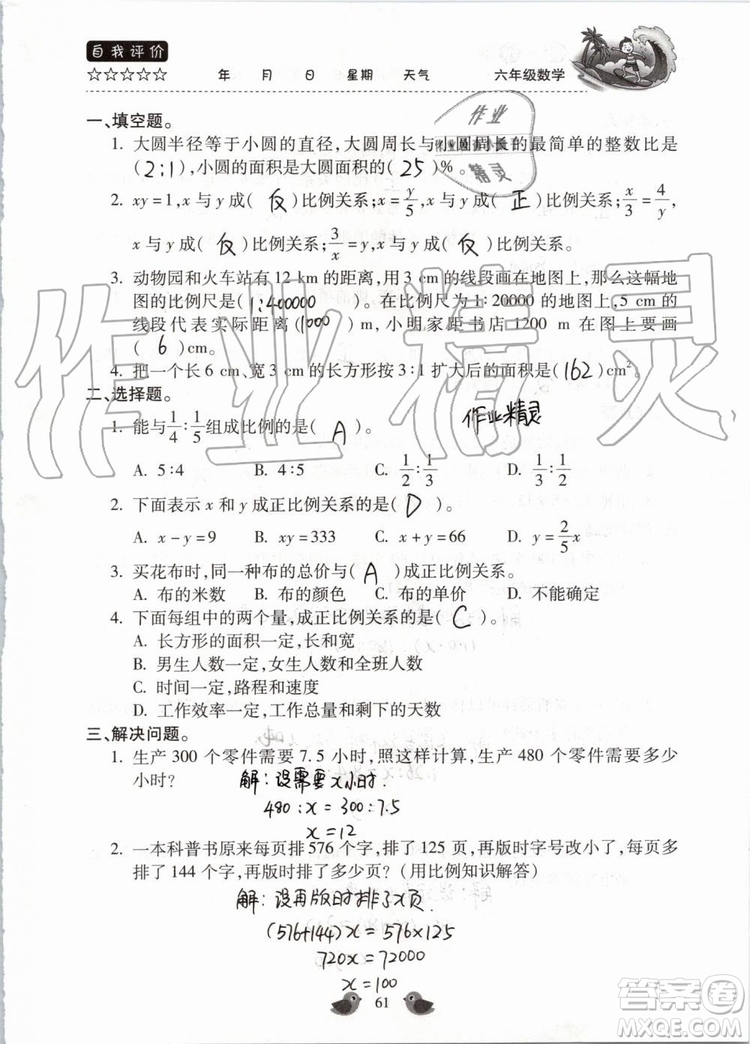 自我评价
☆☆☆☆☆ 年 月 日 星期 天气 六年级数学
一、填空题。
1. 大圆半径等于小圆的直径,大圆周长与小圆周长的最简单的整数比是
(2:1),小圆的面积是大圆面积的(25)%。
2. xy=1,x 与 y 成(反)比例关系;x=y/5,x 与 y 成(正)比例关系;x/3=4/y,
x 与 y 成(反)比例关系;3/x=y,x 与 y 成(反)比例关系。
3. 动物园和火车站有 12 km 的距离,用 3 cm 的线段画在地图上,那么这幅地
图的比例尺是(1:400000)。在比例尺为 1:20000 的地图上,5 cm 的
线段代表实际距离(1000)m,小明家距书店 1200 m 在图上要画
(6)cm。
4. 把一个长 6 cm、宽 3 cm 的长方形按 3:1 扩大后的面积是(162)cm²。
二、选择题。
1. 能与1/4:1/5组成比例的是(A)。
A. 5:4 B. 4:5 C. 1/2:1/3 D. 1/3:1/2
2. 下面表示 x 和 y 成正比例关系的是(D)。
A. x-y=9 B. xy=333 C. x+y=66 D. y=2/5x
3. 买花布时,同一种布的总价与(A)成正比例关系。
A. 布的米数 B. 布的颜色 C. 布的单价 D. 不能确定
4. 下面每组中的两个量,成正比例关系的是(C)。
A. 长方形的面积一定,长和宽
B. 男生人数一定,女生人数和全班人数
C. 时间一定,路程和速度
D. 工作效率一定,工作总量和剩下的天数
三、解决问题。
1. 生产 300 个零件需要 7.5 小时,照这样计算,生产 480 个零件需要多少
小时?
解:设需要x小时.
480:x=300:7.5
x=12
2. 一本科普书原来每页排 576 个字,排了 125 页,再版时字号改小了,每页多
排了 144 个字,再版时排了多少页?(用比例知识解答)
解:设再版时排了x页.
(576+144)x=576×125
720x=72000
x=100
61
作业精灵
作业
精灵
作业精灵
答案圈
MXQE.COM